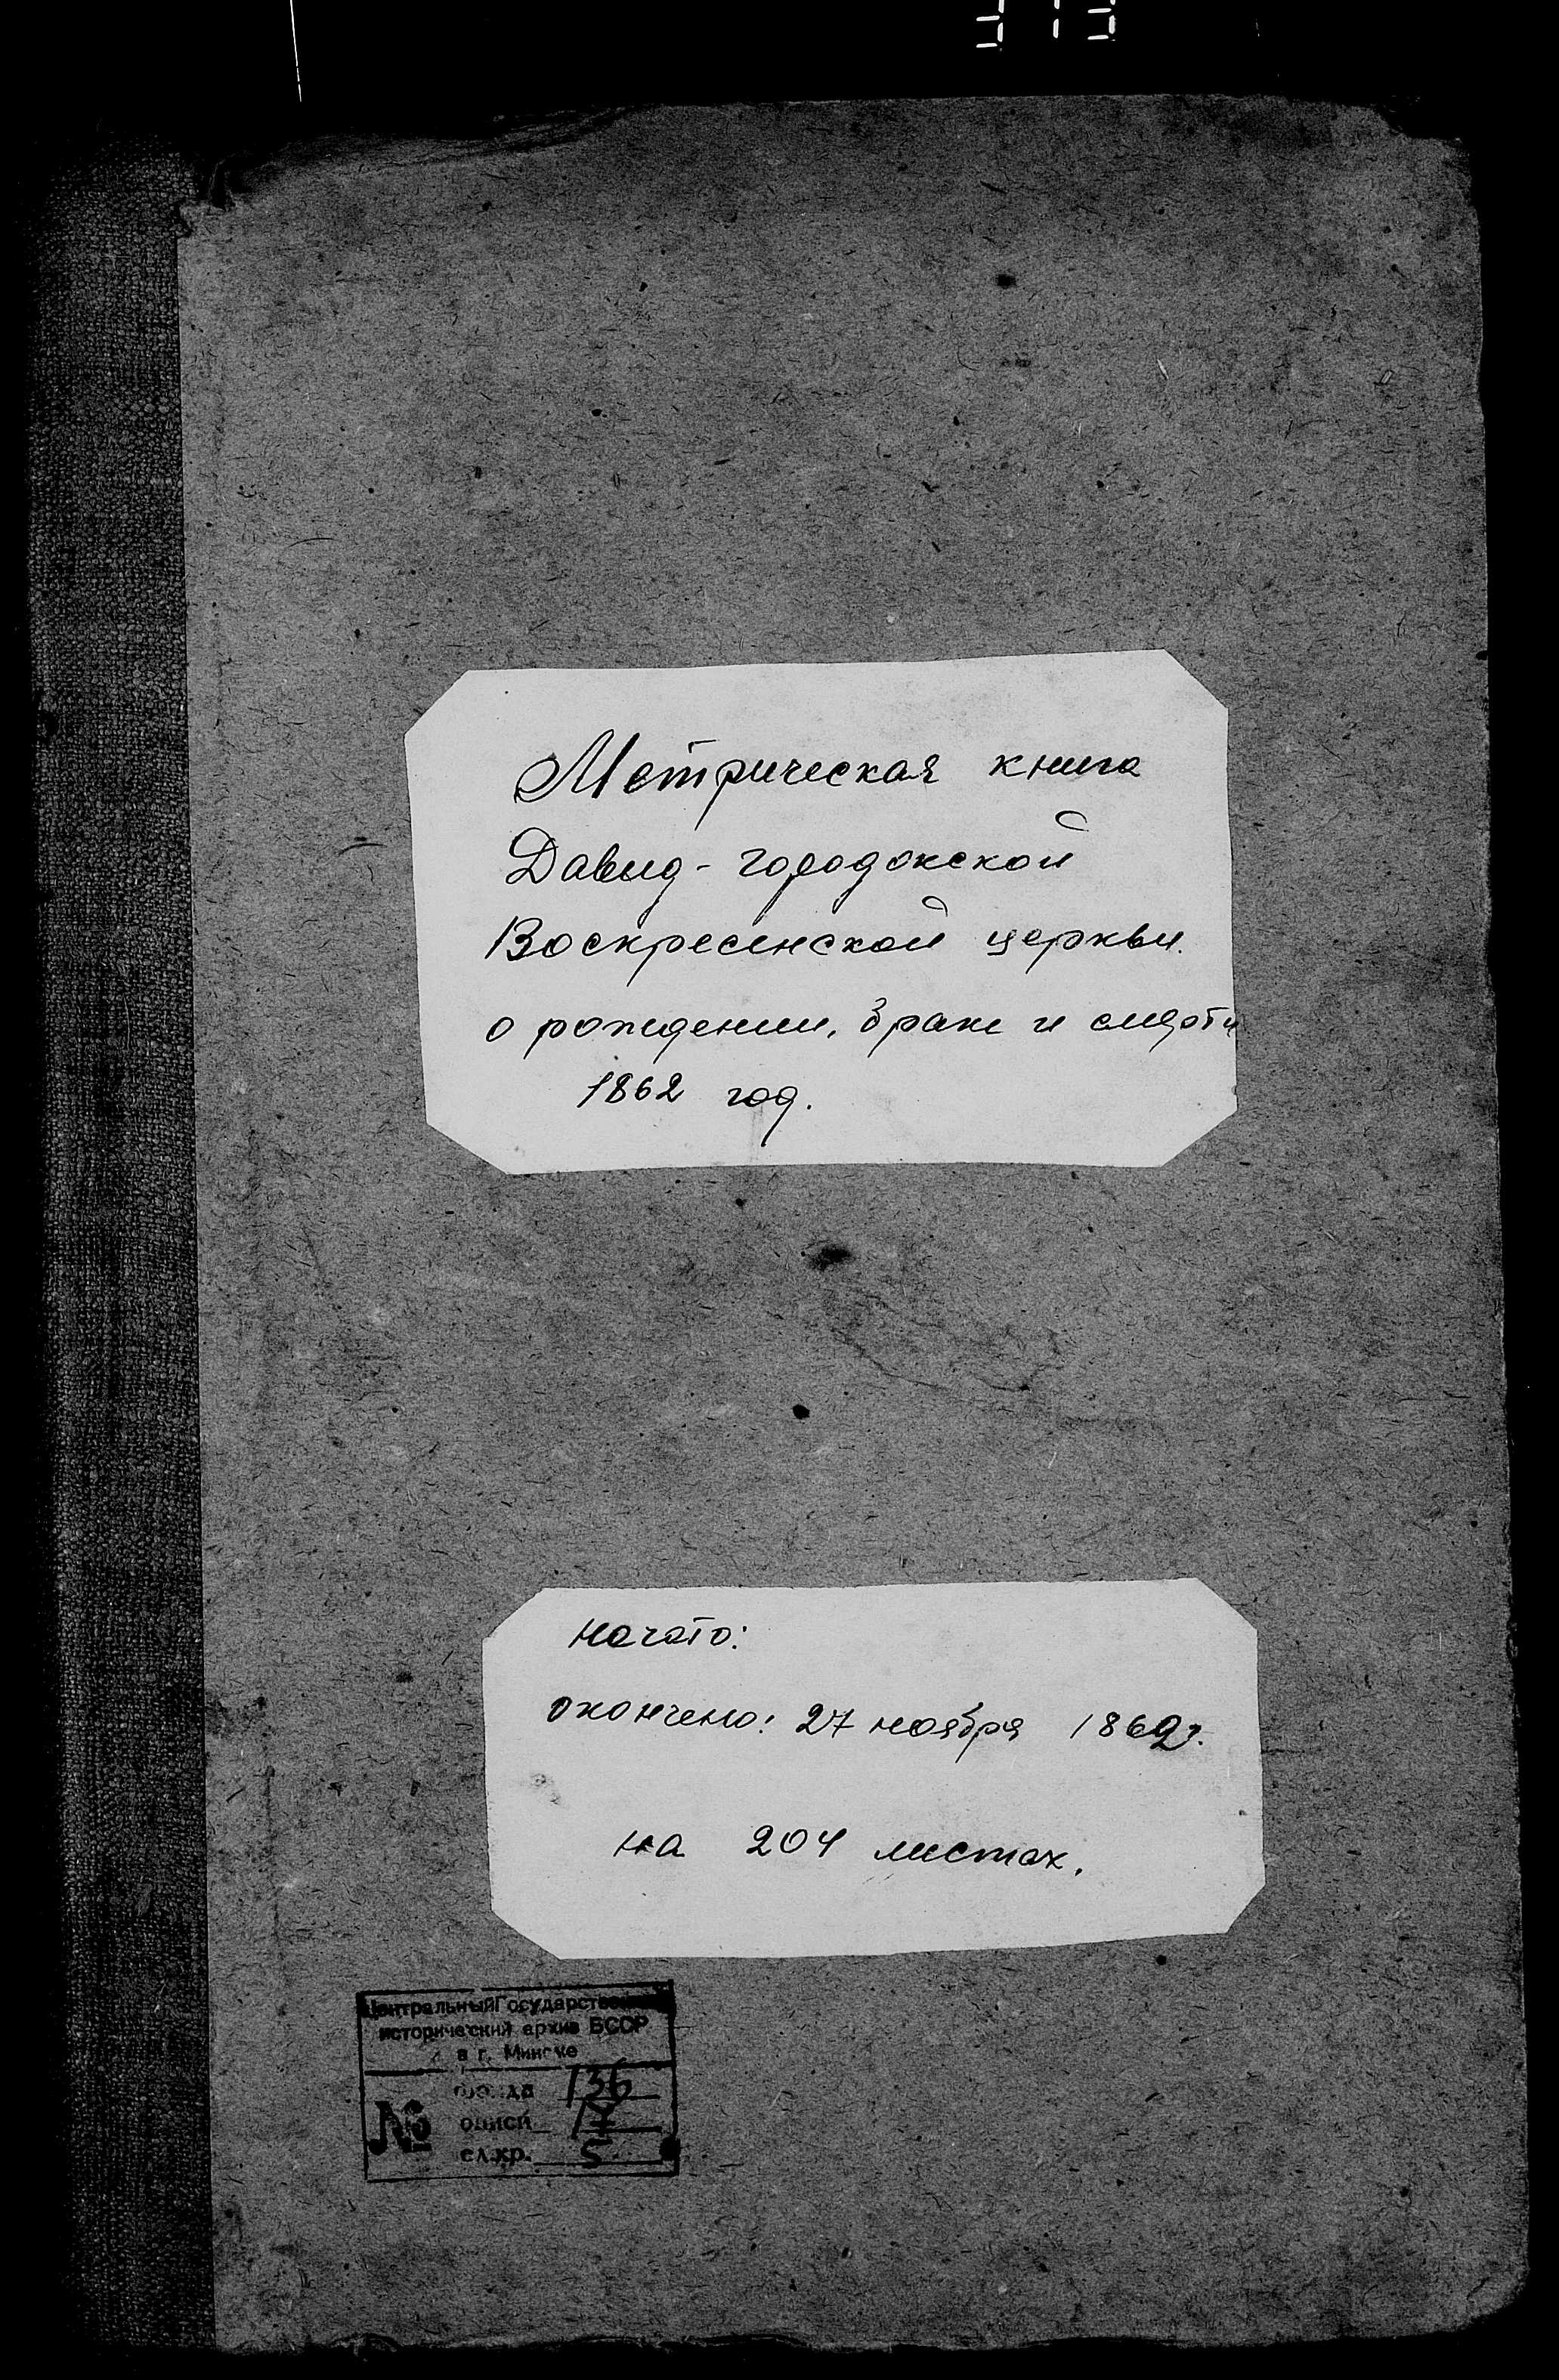 Метрическая книга
Давид-городокской
Воскресенской церкви.
о рождении, браке и смерти
1862 год.
начато:
окончено: 27 ноября 1862г.
на 204 листах.
Центральный Государственный
исторический архив БССР
в г. Минске
фонда 136
№ описи
ед.хр. 5